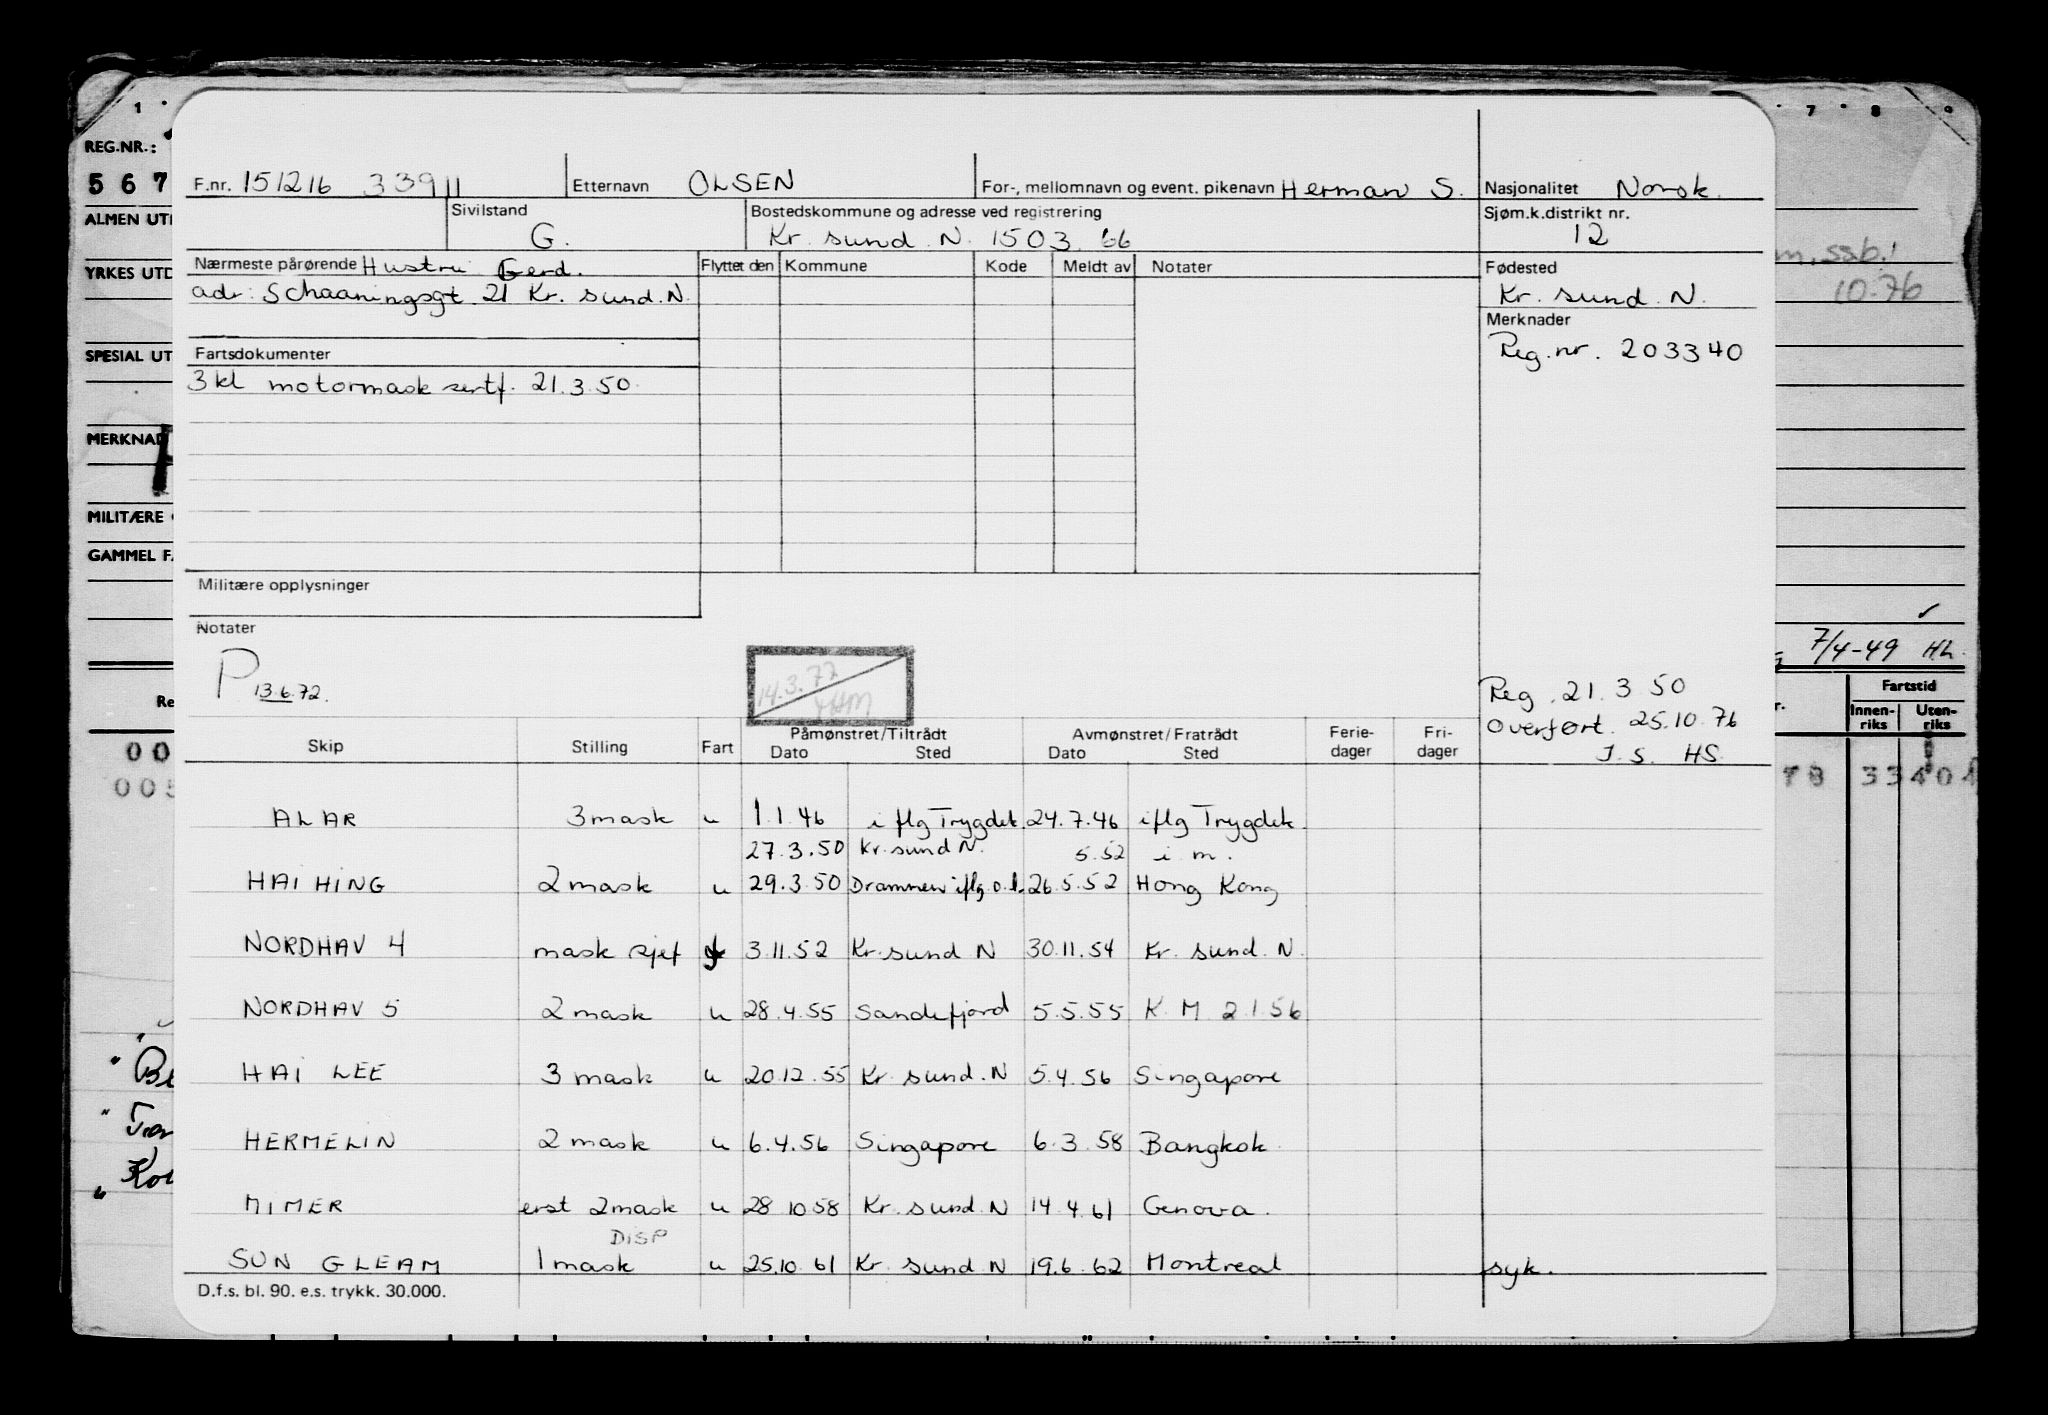 1 7 8 9
REG.NR.:
5 6 7
ALMEN UT
YRKES UTD
SPESIAL UT
MERKNAD
MILITÆRE
GAMMEL F
F.nr. 151216 33911 Etternavn OLSEN For-, mellomnavn og event. pikenavn Herman S. Nasjonalitet Norsk.
Sivilstand G. Bostedskommune og adresse ved registrering Kr. sund. N. 1503. 66 Sjøm.k.distrikt nr. 12
Nærmeste pårørende Hustru Gerd. Flyttet den Kommune Kode Meldt av Notater Fødested
adr: Schaaningsgt 21 Kr. sund. N. Kr. sund. N.
Merknader
Fartsdokumenter Reg.nr. 203340
3 kl motormask sertf. 21.3.50.
Militære opplysninger
Notater
P 13.6.72.
14.3.77
Reg. 21.3.50
Overført. 25.10.76
J.S. HS.
10.76
7/4-49 HL.
Fartstid
Innen-riks Uten-riks
Skip Stilling Fart Påmønstret/Tiltrådt Dato Sted Avmønstret/Fratrådt Dato Sted Ferie-dager Fri-dager
ALAR 3 mask u 1.1.46 i flg Trygdek. 24.7.46 iflg Trygdek.
27.3.50 Kr.sund N. 5.52 i m.
HAI HING 2 mask u 29.3.50 Drammen iflg o.l. 26.5.52 Hong Kong
NORDHAV 4 mask sjef 3.11.52 Kr.sund N 30.11.54 Kr. sund. N.
NORDHAV 5 2 mask u 28.4.55 Sandefjord 5.5.55 K M 2.1.56
HAI LEE 3 mask u 20.12.55 Kr. sund. N 5.4.56 Singapore
HERMELIN 2 mask u 6.4.56 Singapore 6.3.58 Bangkok.
MIMER erst 2mask u 28.10.58 Kr. sund. N 14.4.61 Genova.
DISP
SUN GLEAM 1 mask u 25.10.61 Kr. sund N 19.6.62 Montreal syk.
D.f.s. bl. 90. e.s. trykk. 30.000.